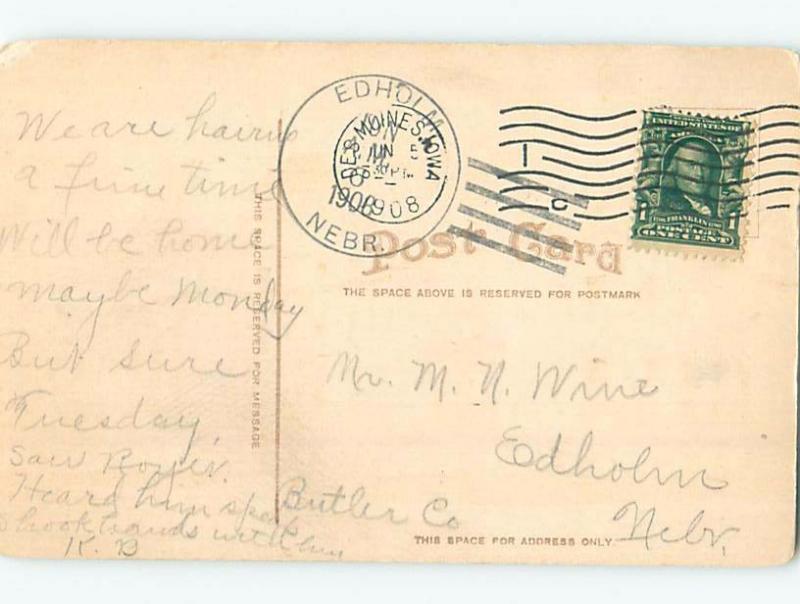 We are having
a fine time
Will be home
maybe Monday
But sure
Tuesday,
Saw
Heard him speak
Shook hands with him
K. B
THIS SPACE IS RESERVED FOR MESSAGE
EDHOLM
NEBR.
1908
DES MOINES, IOWA
JUN 5
1908
UNITED STATES OF
FRANKLIN
ONE CENT
Post Card
THE SPACE ABOVE IS RESERVED FOR POSTMARK
Mr. M. N. Wine
Edholm
Butler Co
Nebr.
THIS SPACE FOR ADDRESS ONLY